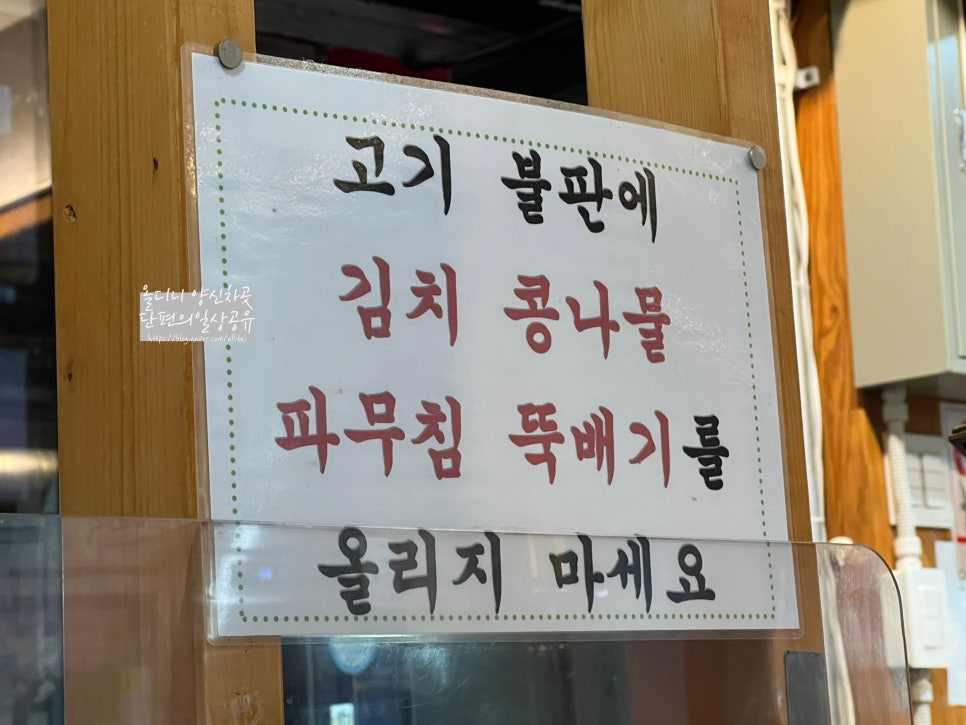 고기 불판에
김치 콩나물
파무침 뚝배기를
올리지 마세요
올디나 양신차곳
단편의일상공유